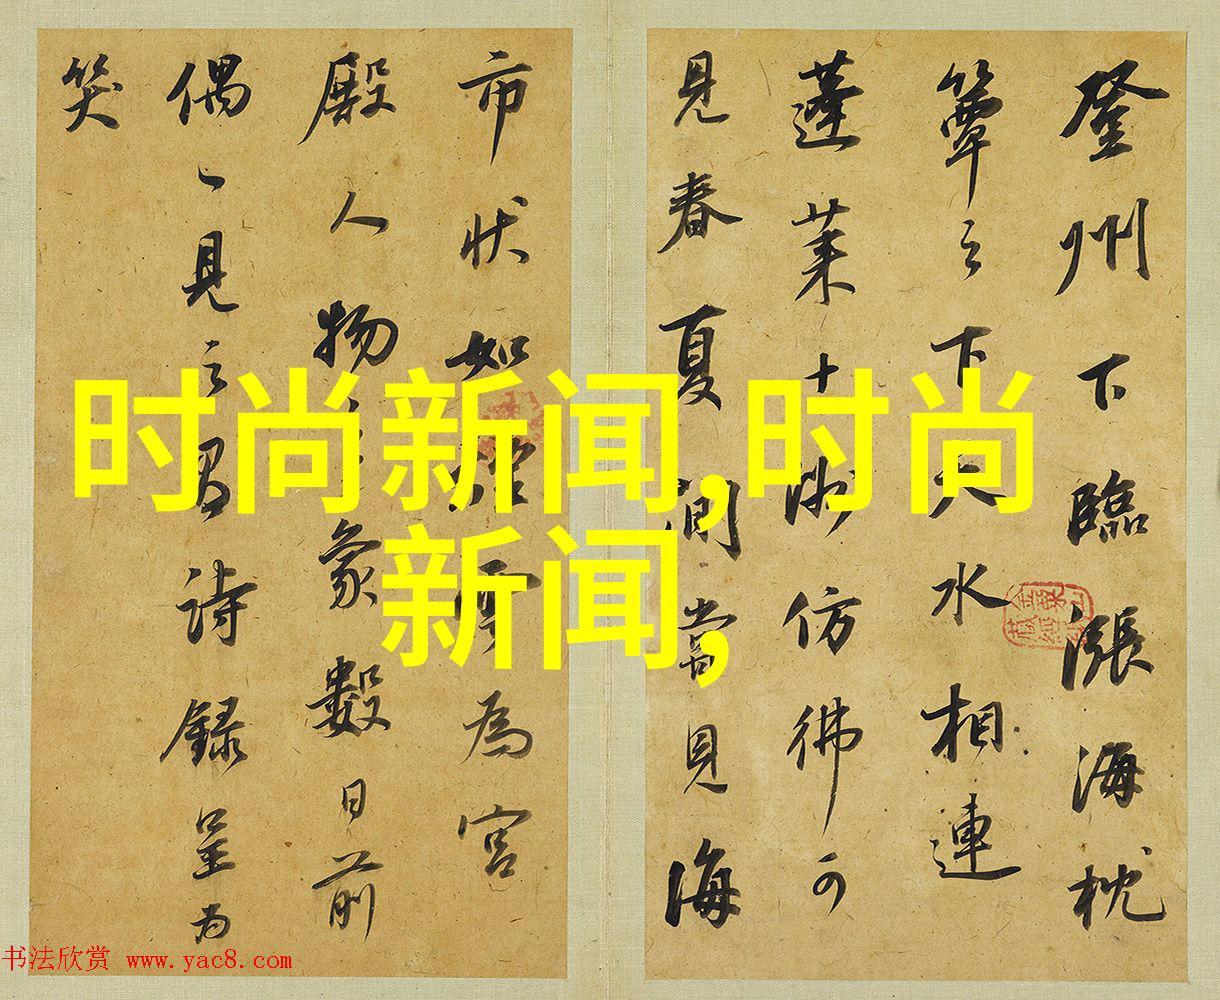 登州下臨漲海枕
簟之下天水相連
蓬莱十洲仿彿可
見春夏間當見海
市状如為宫
殿人物象數日前
偶見之詩録呈為
笑
时尚新闻,时尚
新闻,
书法欣赏 www.yac8.com